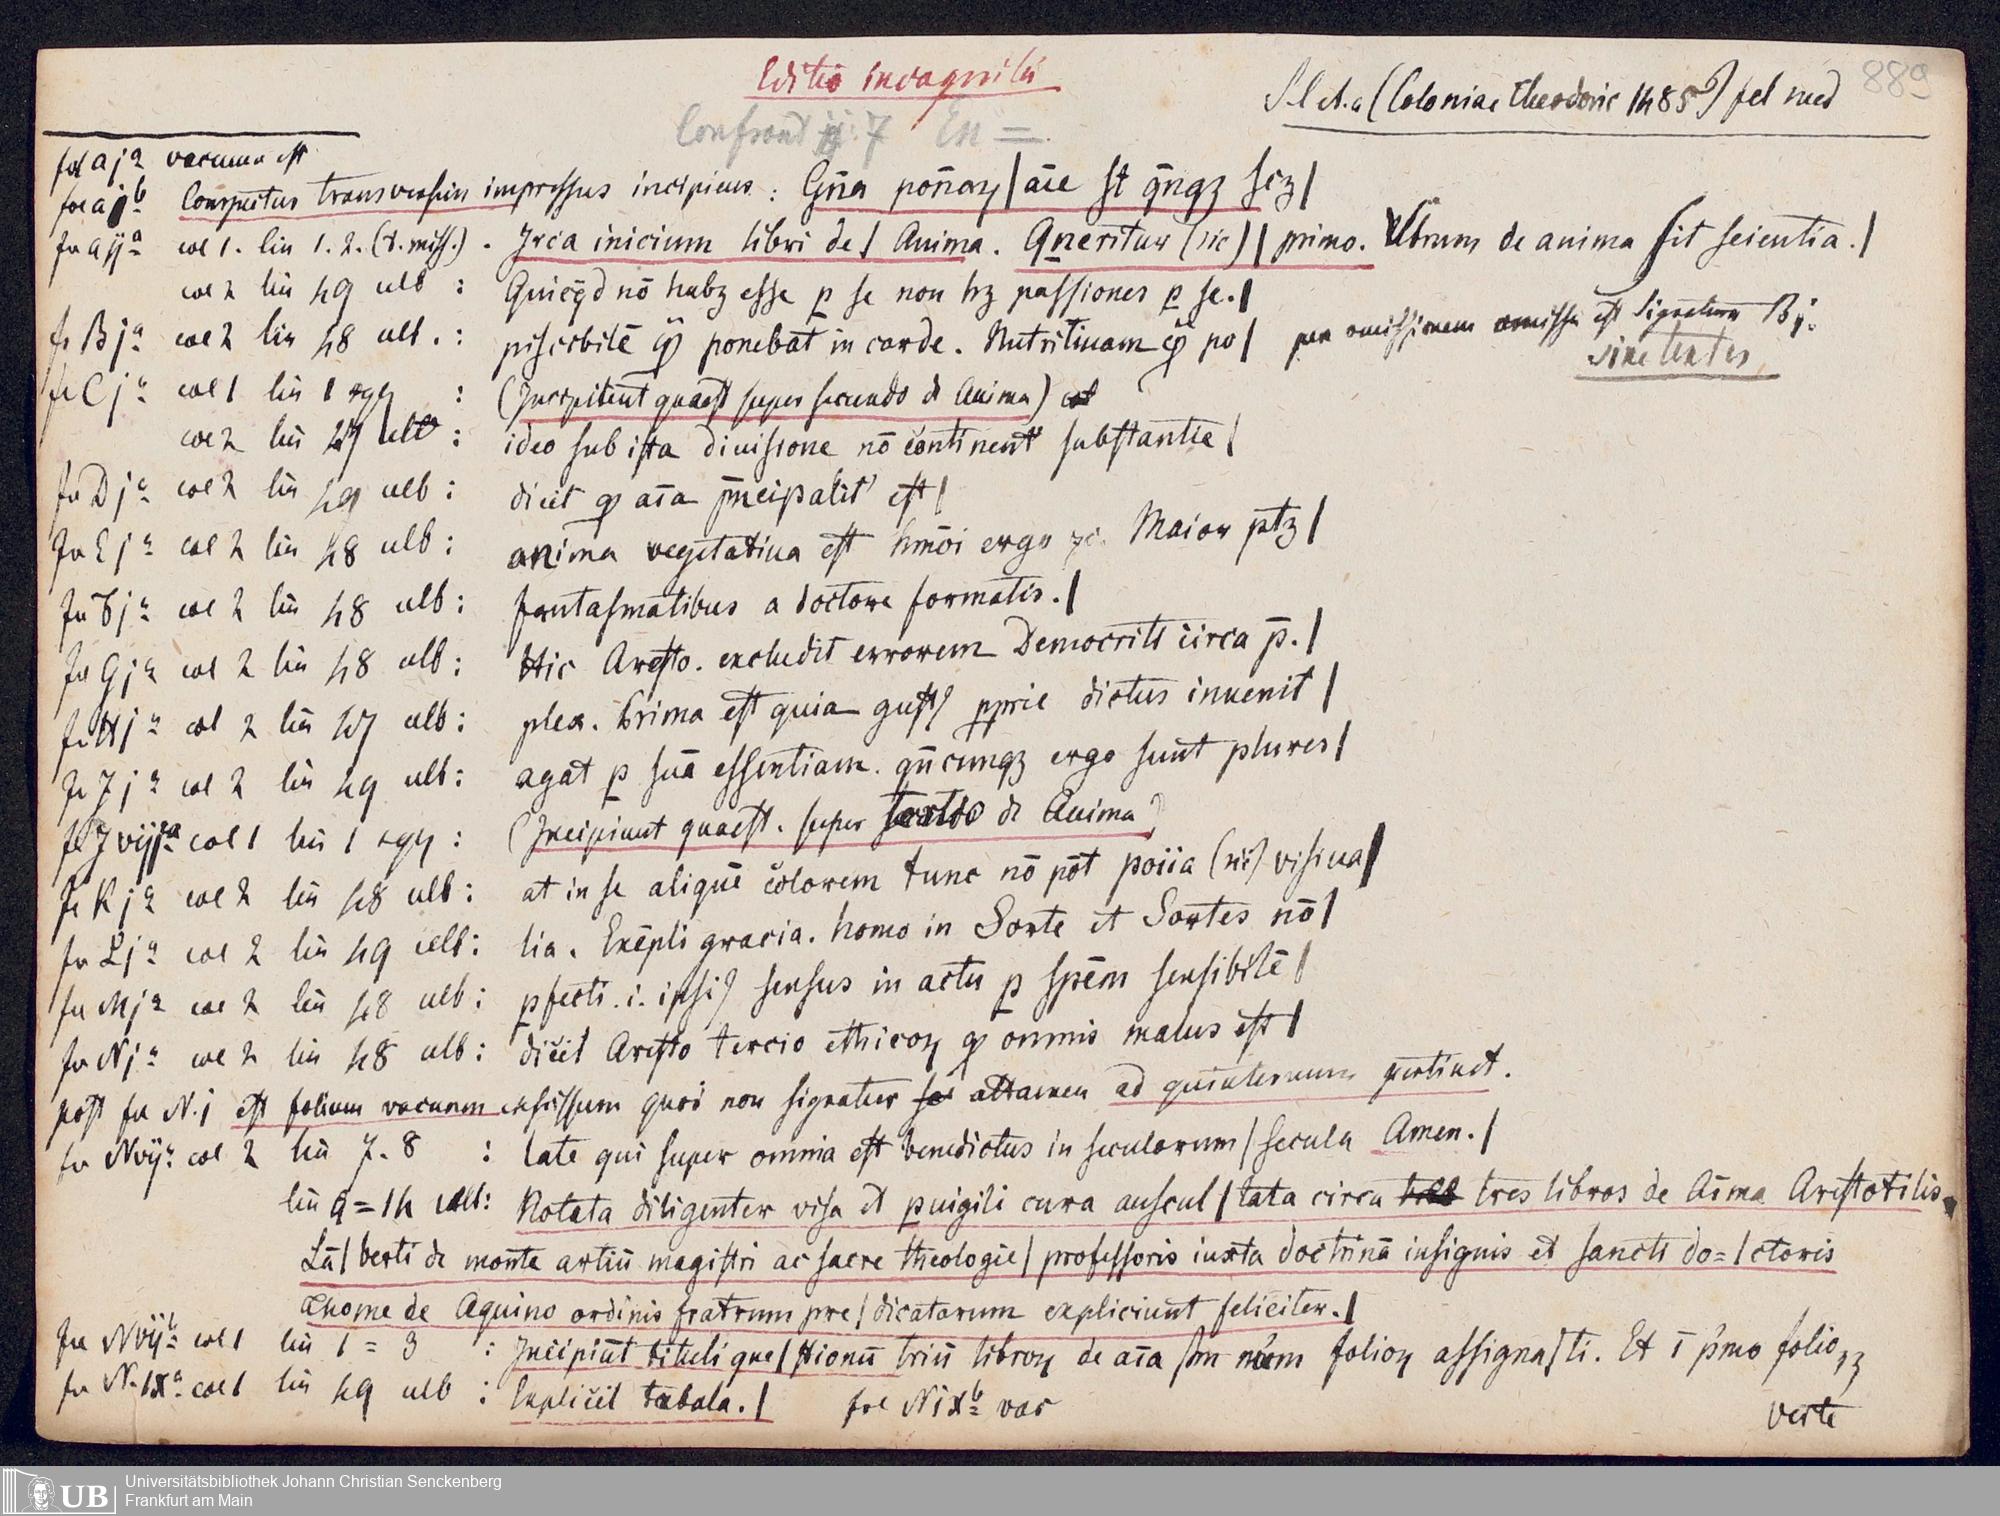 Editio incognita
S l et a (Coloniae Theodoric 1485?) fol med
889
Confront 7 En =
fol aja vacuum est
fol ajb Conspectus transversim impressus incipiens : Gn̄a ponaꝝ | aīe st qn̄qz scz |
fo aija col 1. lin 1. 2. (2. miss.) . Jrca inicium libri de | Anima. Queritur (sic) | primo. Utrum de anima sit scientia. |
col 2 lin 49 ulb : Quicqd nō habz esse p se non hz passiones p se. |
fo Bja col 2 lin 48 ulb. : piscibilē ponebat in corde. Nutritiuam po | per omissionem omissa est Signatura Bj.
sine textus
fo Cja col 1 lin 1 sqq : (Incipiunt quaest super secundo d Anima)
col 2 lin 47 ulb : ideo sub ista diuisione nō continent' substantie |
fo Dja col 2 lin 49 ulb : dicit ꝙ aīa pn̄cipalit' est |
fo Eja col 2 lin 48 ulb : anima vegetatiua est hmōi ergo Maior ptz |
fo Fja col 2 lin 48 ulb : fantasmatibus a doctore formatis. |
fo Gja col 2 lin 48 ulb : Hic Aresto. excludit errorem Democriti circa p̄. |
fo Hja col 2 lin 47 ulb : plex. Prima est quia gust9 pprie dictus inuenit |
fo Jja col 2 lin 49 ulb : agat p suā essentiam. qn̄cunqz ergo sunt plures |
fo Jvija col 1 lin 1 sqq : (Incipiunt quaest. super tertio de Anima)
fo Kja col 2 lin 48 ulb : at in se aliquē colorem tunc nō pōt poiia (sic) visiua |
fo Lja col 2 lin 49 ulb : lia. Exēpli gracia. homo in Sorte et Sortes nō |
fo Mja col 2 lin 48 ulb : pfecti .i. ipsi9 sensus in actu p spēm sensibilē |
fo Nja col 2 lin 48 ulb : dicit Aresto tercio ethicoꝝ ꝙ omnis malus est |
post fo N.j est folium vacuum insissum quod non signatur attamen ad quinternum pertinet.
fo Nvija col 2 lin 7. 8 : late qui super omnia est benedictus in seculorum | secula Amen. |
lin 9=14 ulb: Notata diligenter visa et puigili cura auscul | tata circa tres libros de Aīma Arestotilis
Lā | berti de monte artiū magistri ac sacre theologie | professoris iuxta doctrinā insignis et sancti do= | ctoris
Thome de Aquino ordinis fratrum pre | dicatorum expliciunt feliciter. |
fo Nvijb col 1 lin 1 = 3 : Incipiūt tituli que | stionū triū libroꝝ de aīa sm folioꝝ assigna | ti. Et ī pmo folio
fo N.ixa col 1 lin 49 ulb : Explicit tabula. | fol Nixb vac
verte
Universitätsbibliothek Johann Christian Senckenberg
UB Frankfurt am Main